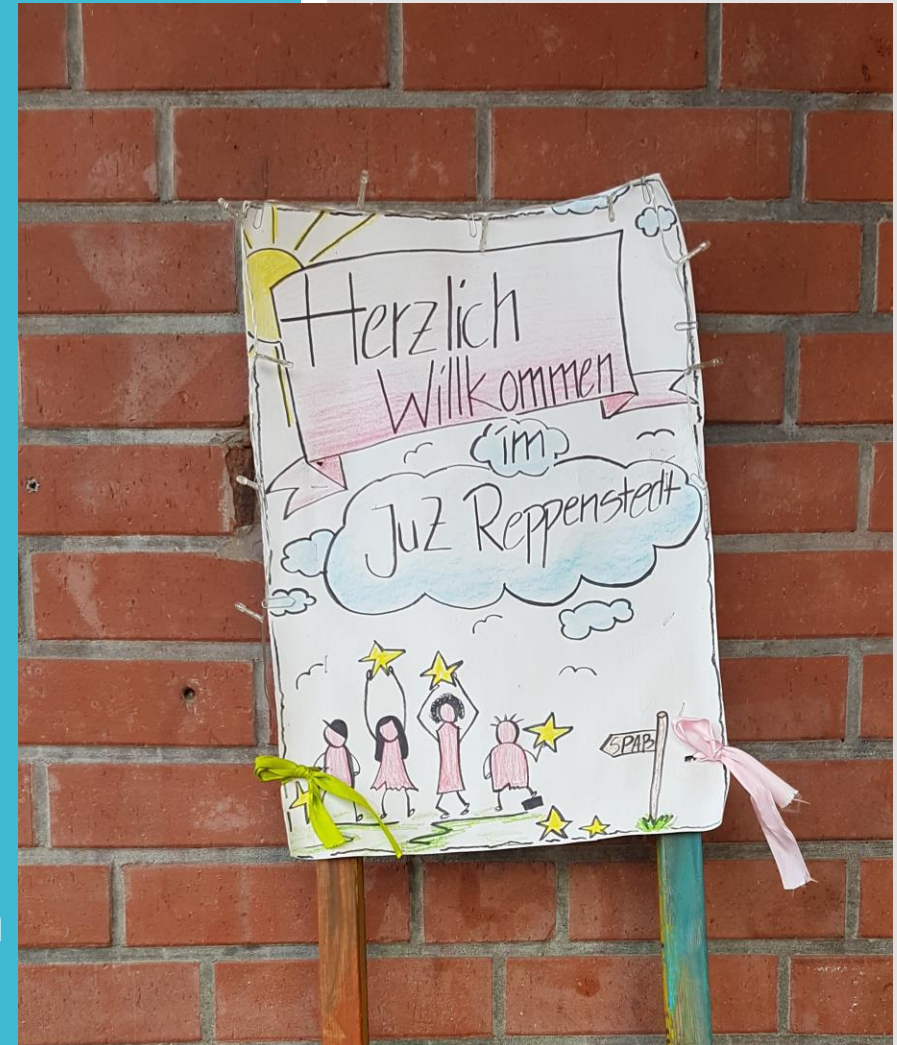 Herzlich
Willkommen
im
JuZ Reppenstedt
SPAß